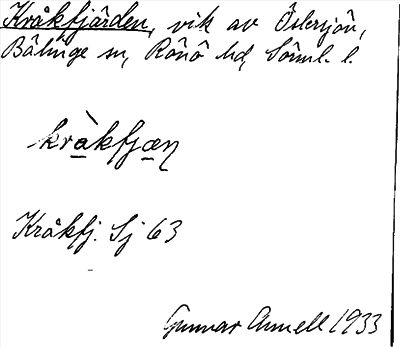 Kråkfjärden, vik av Östersjön,
Bälinge sn, Rönö hd, Söml. l.
kràkfjæn
Kråkfj. Sj 63
Gunnar Annell 1933